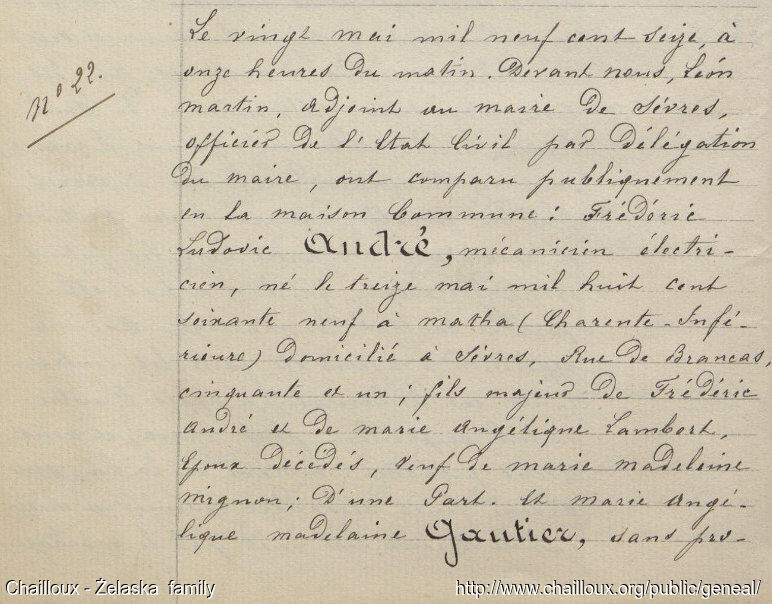 N° 22.
Le vingt mai mil neuf cent seize, à
onze heures du matin. Devant nous, Léon
Martin, Adjoint au maire de Sèvres,
officier de l'Etat Civil par délégation
du maire, ont comparu publiquement
en la maison Commune : Frédéric
Ludovic André, mécanicien électri-
cien, né le treize mai mil huit cent
soixante neuf à Matha (Charente-Infé-
rieure) domicilié à Sèvres, Rue de Brancas,
cinquante et un ; fils majeur de Frédéric
André et de Marie Angélique Lambert,
Epoux décédés, veuf de Marie Madeleine
Mignon ; D'une Part. Et Marie Angé-
lique Madelaine Gautier, sans pro-
Chailloux - Żelaska family
http://www.chailloux.org/public/geneal/